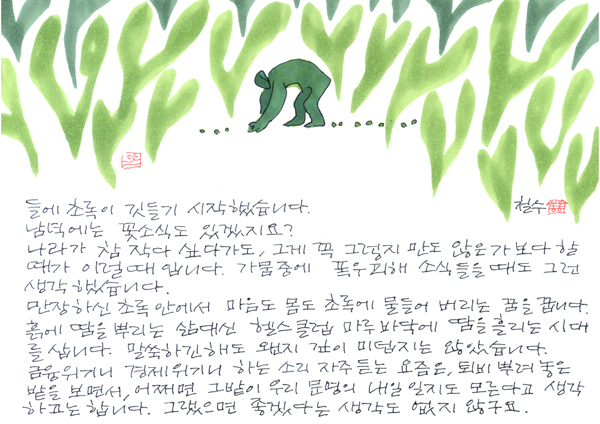 들에 초록이 깃들기 시작했습니다.
철수
남녘에는 꽃소식도 있겠지요?
나라가 참 작다 싶다가도, 그게 꼭 그렇지 만도 않은가보다 할
때가 이럴때 입니다. 가뭄중에 폭우피해 소식들을 때도 그런
생각했습니다.
만장하신 초록안에서 마음도 몸도 초록에 물들어 버리는 꿈을 꿉니다.
흙에 땀을 뿌리는 삶대신 헬스클럽 마루바닥에 땀을 흘리는 시대
를 삽니다. 말쑥하긴해도 왠지 깊이 미덥지는 않았습니다.
금융위기니 경제위기니 하는 소리 자주 듣는 요즘은, 퇴비 뿌려 놓은
밭을 보면서, 어쩌면 그밭이 우리 문명의 내일 일지도 모른다고 생각
하고는 합니다. 그랬으면 좋겠다는 생각도 없지 않구요.